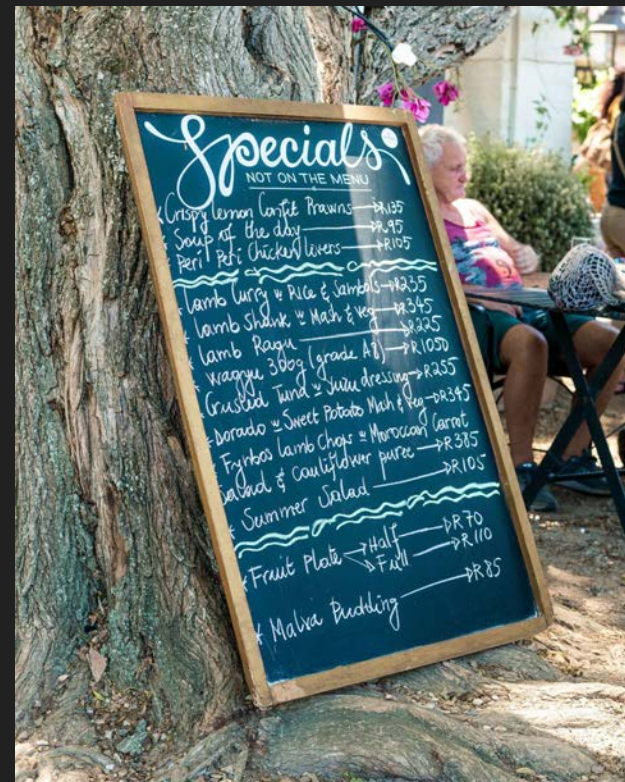 Specials
NOT ON THE MENU
* Crispy lemon Confit Prawns → R135
* Soup of the day → R95
* Peri Peri Chicken livers → R105
* Lamb Curry w Rice & Sambals → R235
* Lamb Shank w Mash & Veg → R345
* Lamb Ragu → R225
* Wagyu 300g (grade A8) → R1050
* Crusted Tuna w Yuzu dressing → R255
* Dorado w Sweet Potato Mash & Veg → R345
* Fynbos Lamb Chops w Moroccan Carrot
Salad & Cauliflower puree → R385
* Summer Salad → R105
* Fruit Plate → Half → R70
→ Full → R110
* Malva Pudding → R85